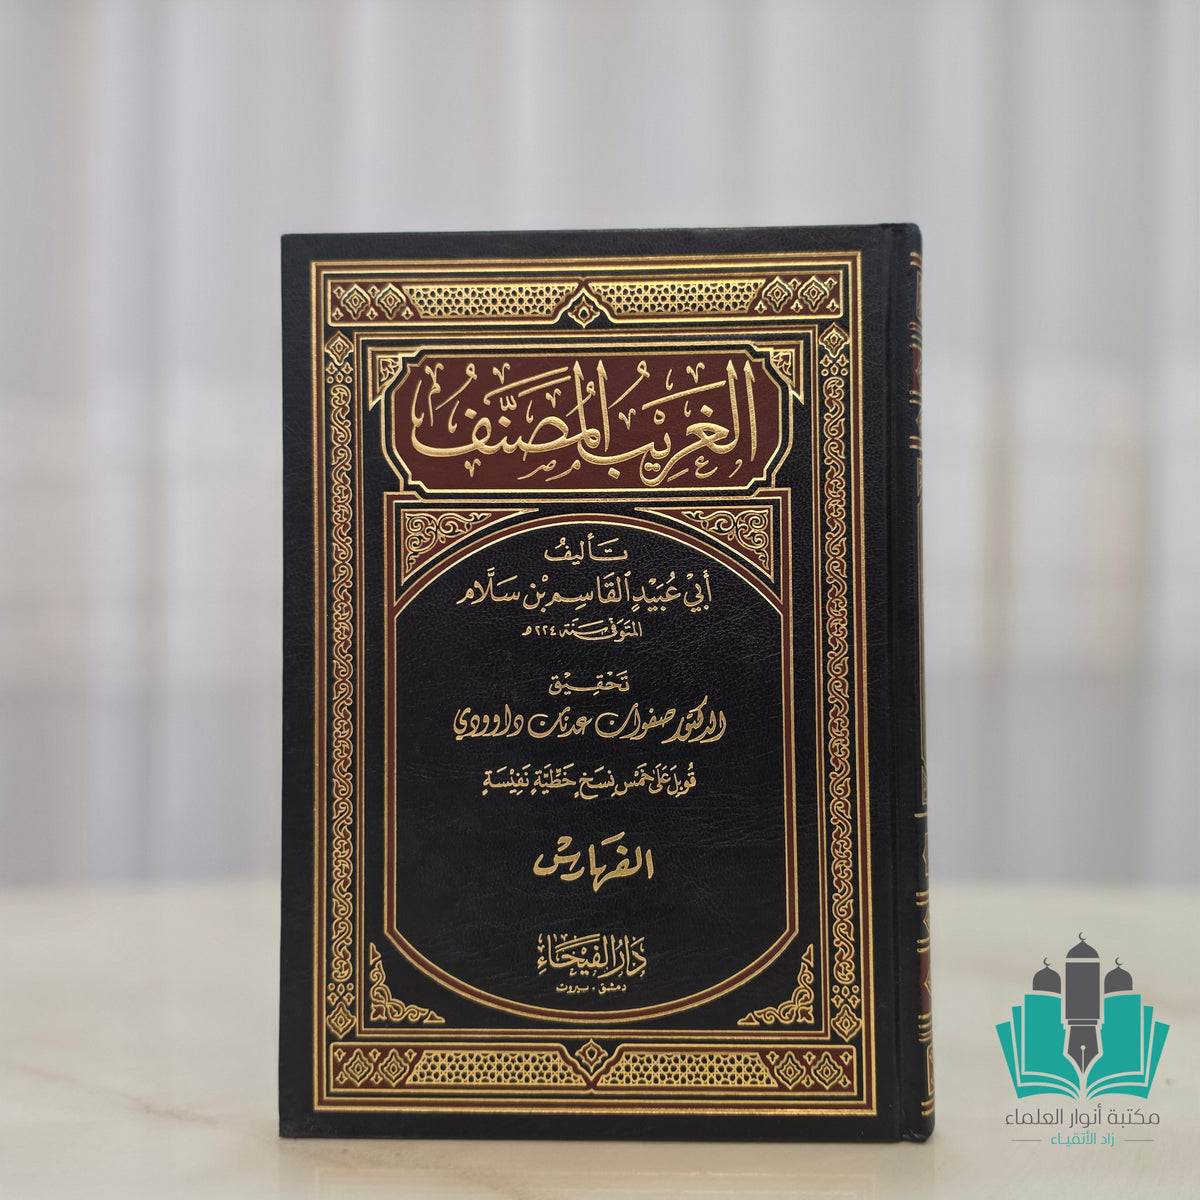 الغَرِيبُ المُصَنَّفُ
تأليفُ
أَبِيْ عُبَيْدٍ القَاسِمِ بْنِ سَلَّام
المتوفى سنة ٢٢٤ هـ
تَحْقِيق
الدكتور صفوان عدنان داوودي
قُوبِلَ عَلَى خَمْسِ نُسَخٍ خَطِّيَّةٍ نَفِيْسَةٍ
الفهارس
دَارُ الفَيْحَاءِ
دمشق - بيروت
مكتبة أنوار العلماء
زاد الأتقياء